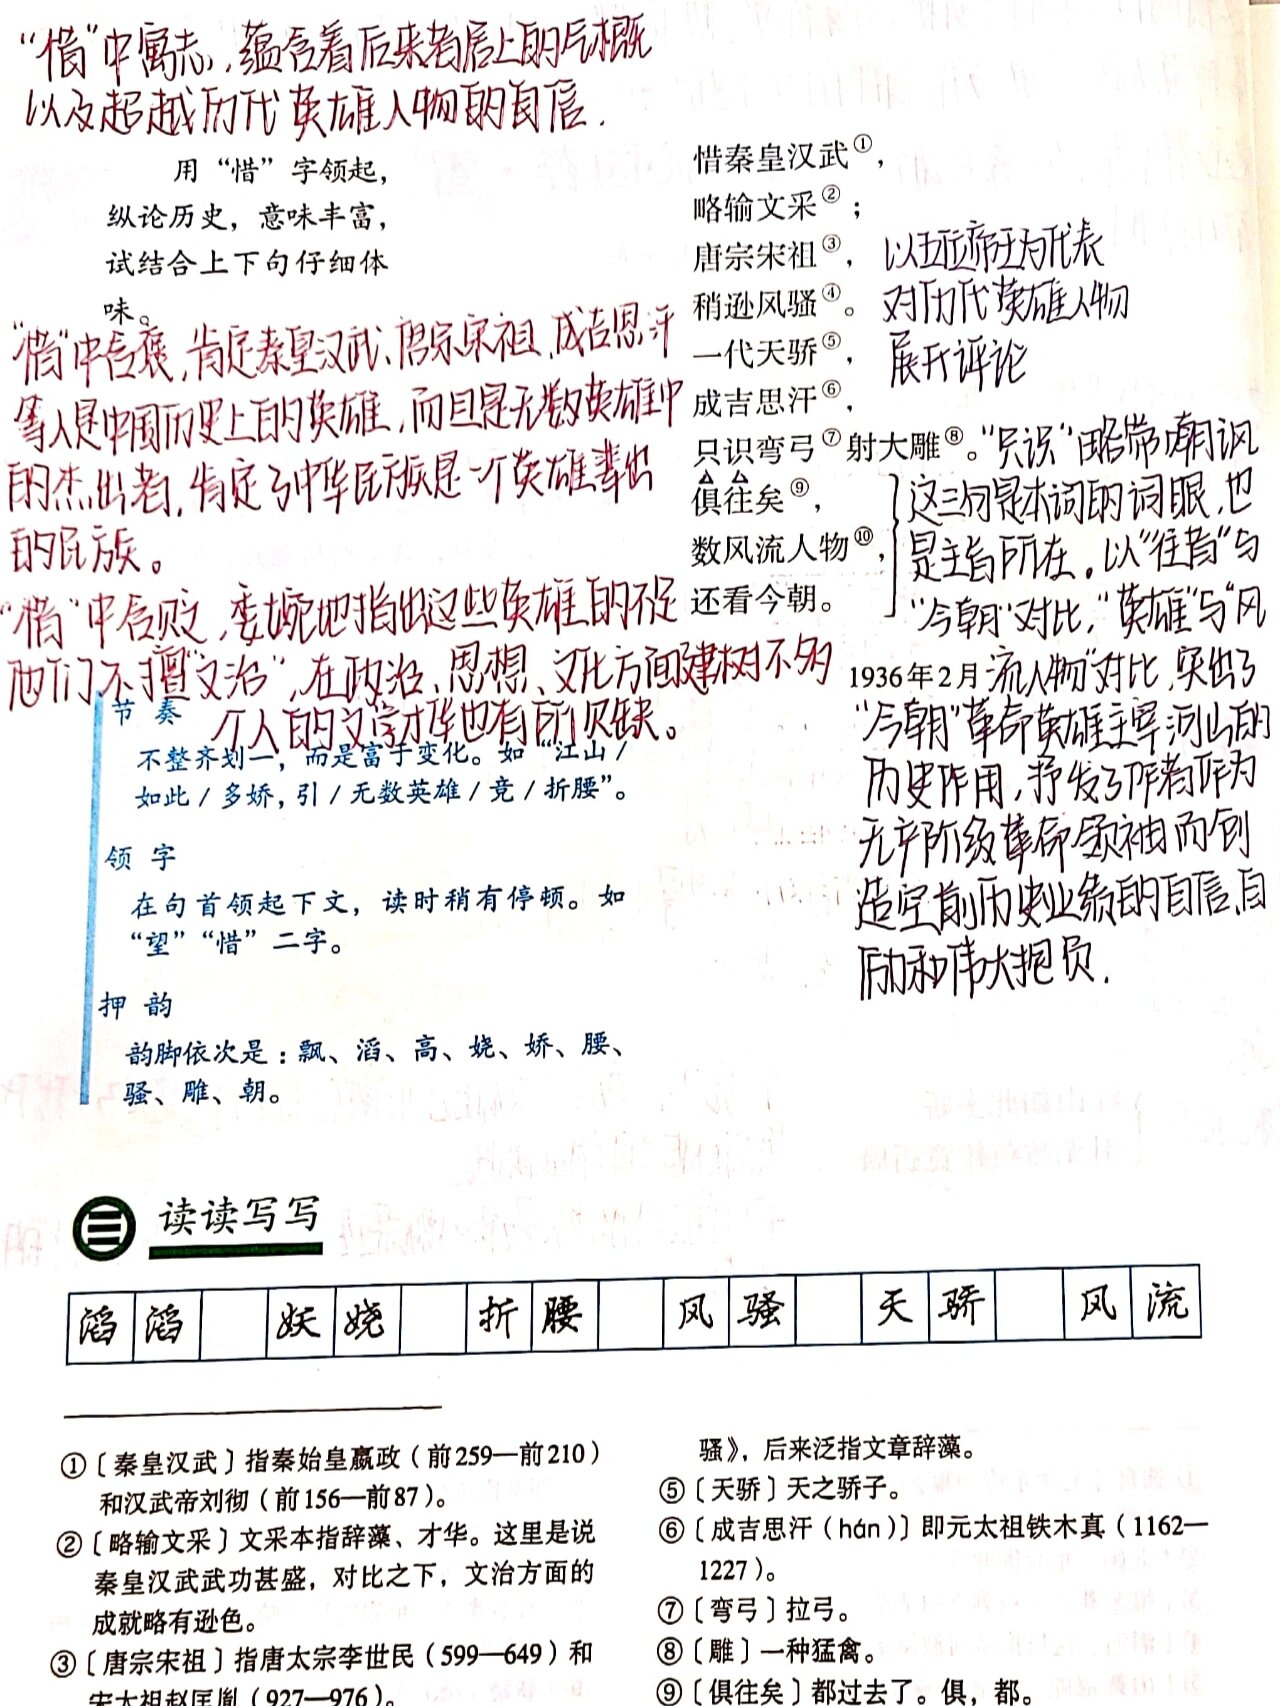 “惜”中寓志,蕴含着后来者居上的气概
以及超越历代英雄人物的自信.
用“惜”字领起，
纵论历史，意味丰富，
试结合上下句仔细体
味。
“惜”中含褒,肯定秦皇汉武、唐宗宋祖、成吉思汗
等人是中国历史上的英雄,而且是无数英雄中
的杰出者,肯定了中华民族是一个英雄辈出
的民族。
“惜”中含贬,委婉地指出这些英雄的不足
他们不擅“文治”,在政治、思想、文化方面建树不多
个人的文学才华也有所欠缺。
惜秦皇汉武①，
略输文采②；
唐宗宋祖③，
稍逊风骚④。
一代天骄⑤，
成吉思汗⑥，
只识弯弓⑦射大雕⑧。
俱往矣⑨，
数风流人物⑩，
还看今朝。
1936年2月
以五位帝王为代表
对历代英雄人物
展开评论
“只识”略带嘲讽
这三句是本词的词眼,也
是主旨所在。以“往者”与
“今朝”对比,“英雄”与“风
流人物”对比,突出了
“今朝”革命英雄主宰河山的
历史作用,抒发了作者作为
无产阶级革命领袖而创
造空前历史业绩的自信、自
励和伟大抱负.
节 奏
不整齐划一，而是富于变化。如“江山/
如此/多娇，引/无数英雄/竞/折腰”。
领 字
在句首领起下文，读时稍有停顿。如
“望”“惜”二字。
押 韵
韵脚依次是：飘、滔、高、娆、娇、腰、
骚、雕、朝。
读读写写
滔滔 妖娆 折腰 风骚 天骄 风流
①〔秦皇汉武〕指秦始皇嬴政（前259—前210）
和汉武帝刘彻（前156—前87）。
②〔略输文采〕文采本指辞藻、才华。这里是说
秦皇汉武武功甚盛，对比之下，文治方面的
成就略有逊色。
③〔唐宗宋祖〕指唐太宗李世民（599—649）和
宋太祖赵匡胤（927—976）。
骚》，后来泛指文章辞藻。
⑤〔天骄〕天之骄子。
⑥〔成吉思汗（hán）〕即元太祖铁木真（1162—
1227）。
⑦〔弯弓〕拉弓。
⑧〔雕〕一种猛禽。
⑨〔俱往矣〕都过去了。俱，都。